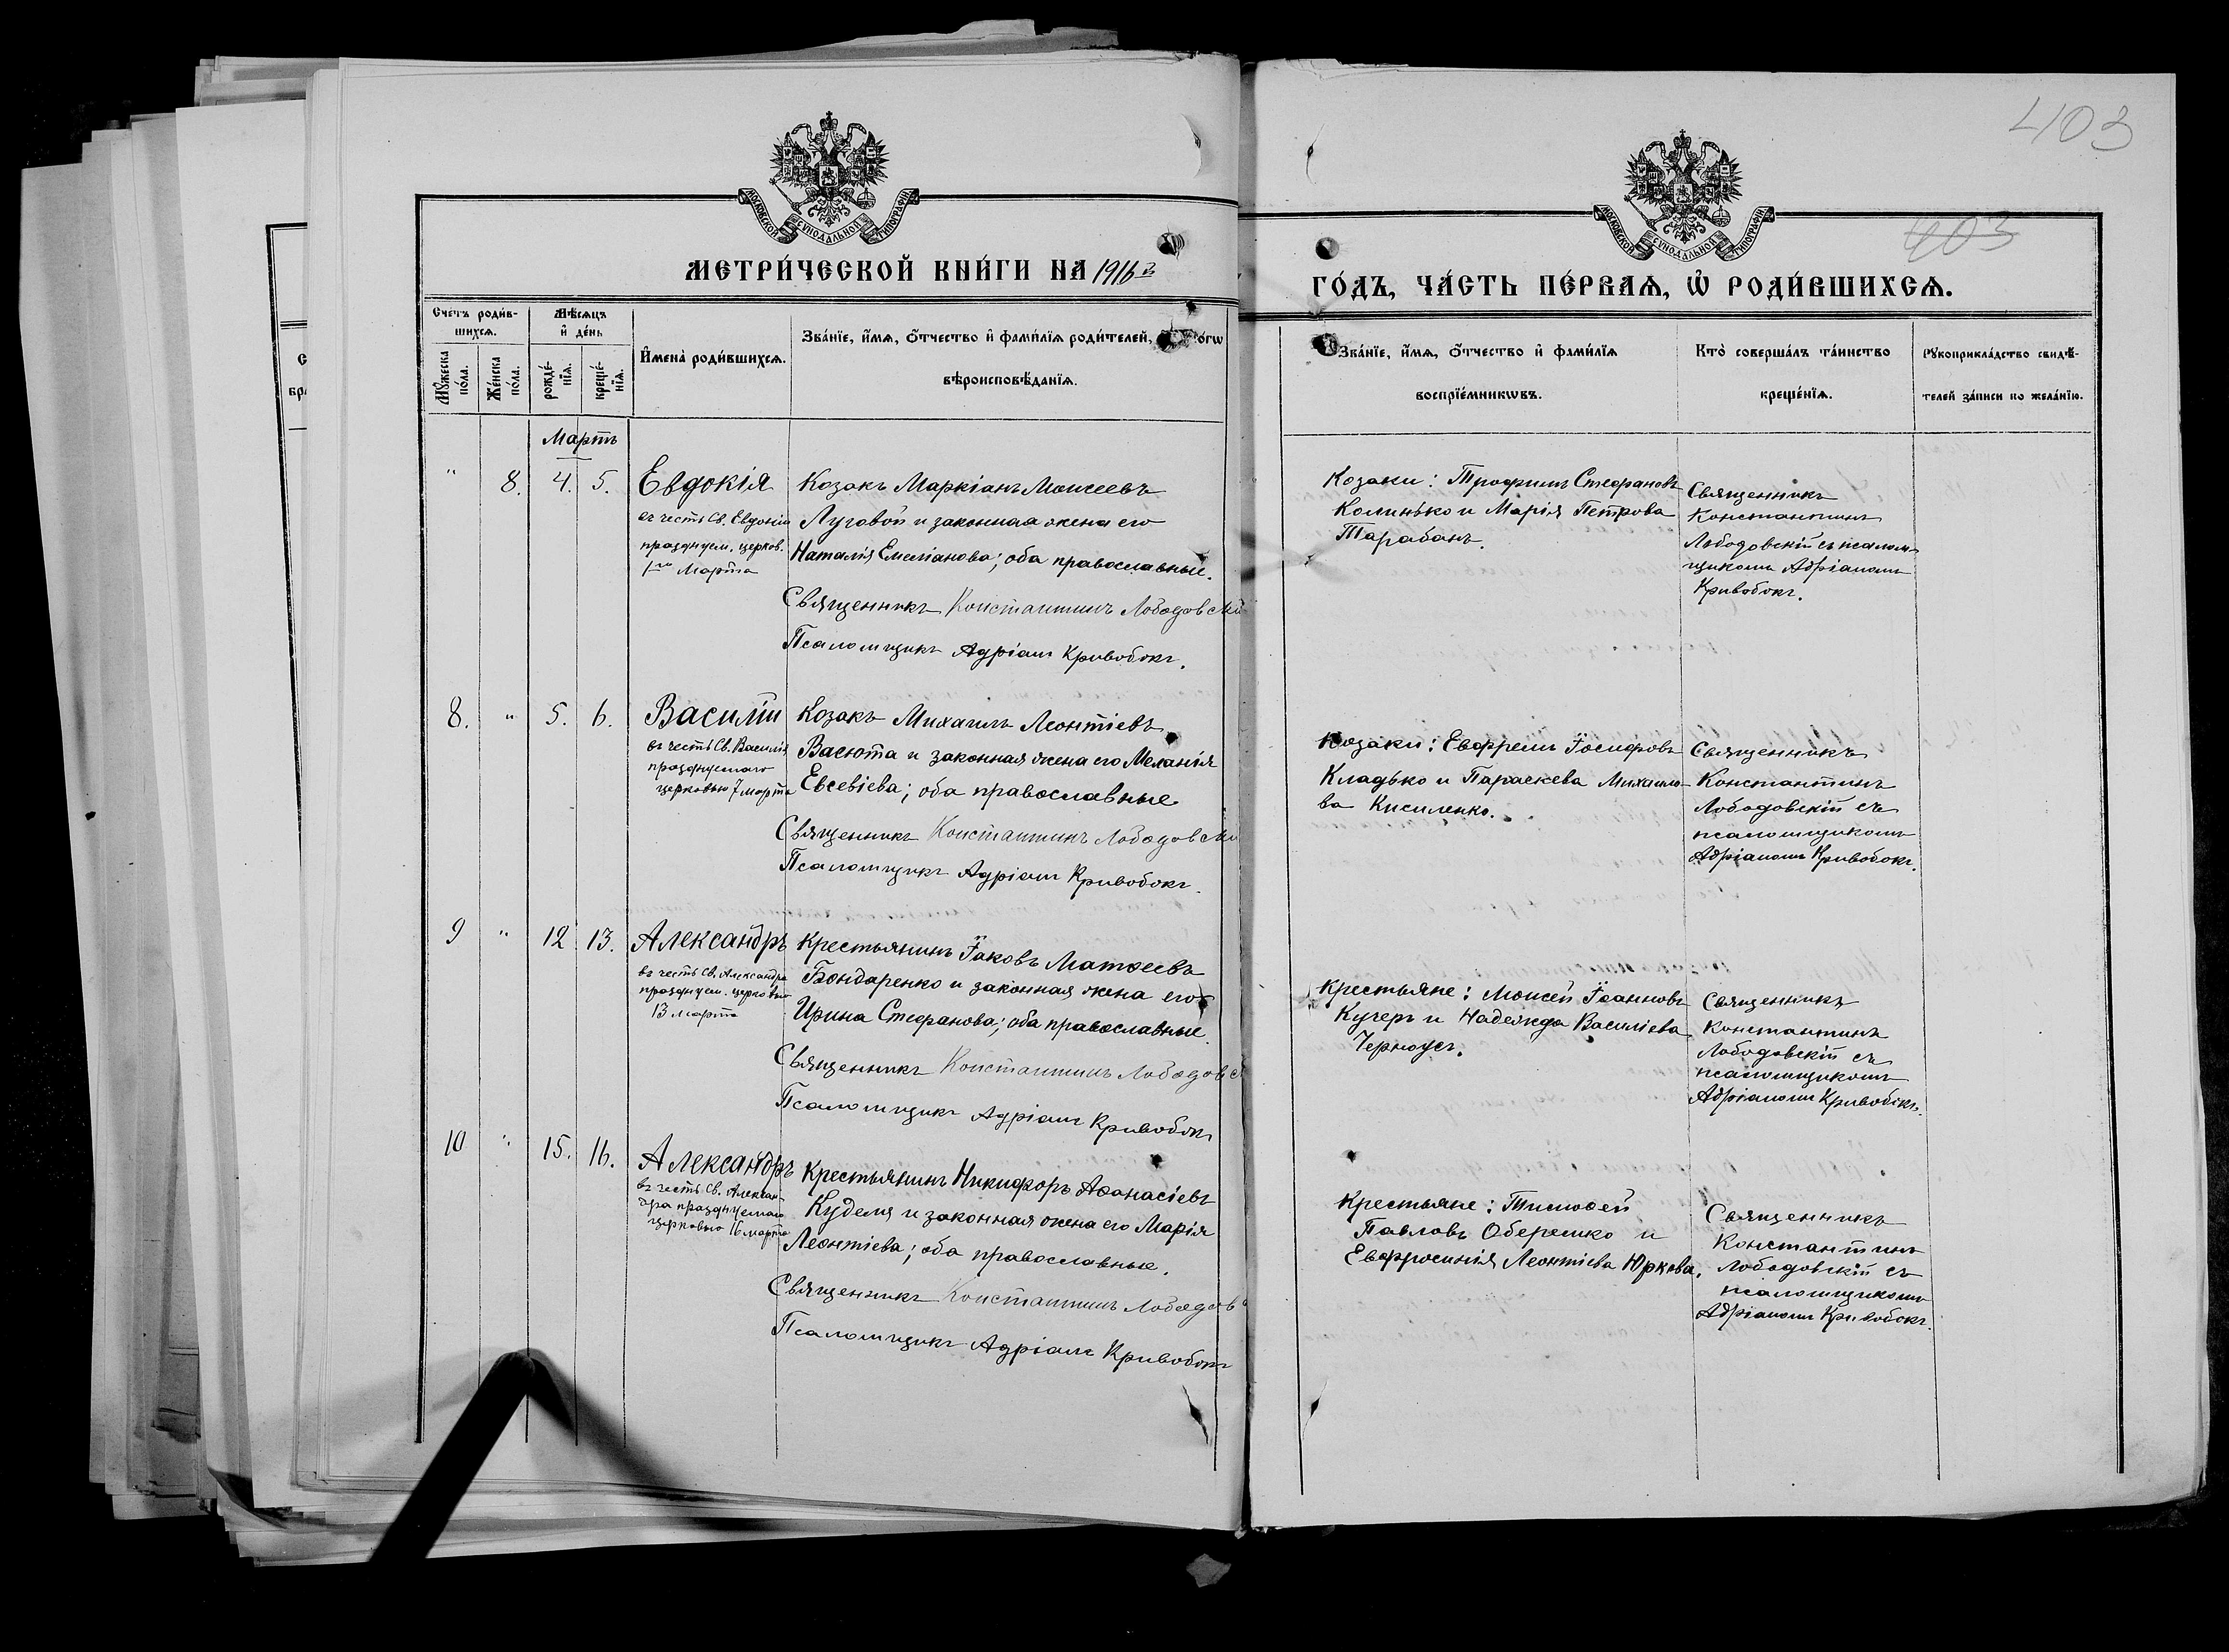 403
403
МОСКОВСКОЙ СѴНОДАЛЬНОЙ ТИПОГРАФІИ
МОСКОВСКОЙ СѴНОДАЛЬНОЙ ТИПОГРАФІИ
МЕТРИ́ЧЕСКОЙ КНИ́ГИ НА 1916й
ГО́ДЪ, ЧА́СТЬ ПЕ́РВАѦ, Ѡ҆ РОДИ́ВШИХСѦ.
Сче́тъ роди́в-
шихсѧ.
Мѣ́сѧцъ
и҆ де́нь
Мꙋ́жеска
по́ла.
Же́нска
по́ла.
рожде́-
нїѧ.
креще́-
нїѧ.
И҆мена̀ роди́вшихсѧ.
Зва́нїе, и҆́мѧ, ѻ҆́тчество и҆ фамѝлїѧ роди́телей,
вѣроисповѣ́данїѧ.
Зва́нїе, и҆́мѧ, ѻ҆́тчество и҆ фами́лїѧ
воспрїе́мникѡвъ.
Кто̀ соверша́лъ та́инство
креще́нїѧ.
Рꙋкоприкла́дство свидѣ́-
телей за́писи по жела́нїю.
Мартъ
" 8. 4. 5.
Евдокія
въ честь Св. Евдокіи
празднуем. церков.
1го Марта
Козакъ Маркіанъ Моисеевъ
Луговой и законная жена его
Наталія Емеліанова; оба православные.
Священникъ Константинъ Лободовскій
Псаломщикъ Адріанъ Кривобокъ.
Козаки: Трофимъ Стефановъ
Колинько и Марія Петрова
Тарабанъ.
Священникъ
Константинъ
Лободовскій съ псалом-
щикомъ Адріаномъ
Кривобокъ.
8. " 5. 6.
Василій
въ честь Св. Василія
празднуемаго
церковью 7 марта
Козакъ Михаилъ Леонтіевъ
Васюта и законная жена его Меланія
Евсевіева; оба православные
Священникъ Константинъ Лободовскі
Псаломщикъ Адріанъ Кривобокъ.
Козаки: Евфремъ Іосифовъ
Кладько и Параскева Михаило-
ва Кисиленко.
Священникъ
Константинъ
Лободовскій съ
псаломщикомъ
Адріаномъ Кривобокъ.
9 " 12 13.
Александръ
въ честь Св. Александра
празднуем. церковью
13 марта
Крестьянинъ Іаковъ Матѳеевъ
Бондаренко и законная жена его
Ирина Стефанова; оба православные.
Священникъ Константинъ Лободовс
Псаломщикъ Адріанъ Кривобокъ
Крестьяне: Моисей Іоанновъ
Кучеръ и Надежда Василіева
Черноусъ.
Священникъ
Константинъ
Лободовскій съ
псаломщикомъ
Адріаномъ Кривобокъ.
10 " 15. 16.
Александръ
въ честь Св. Алексан-
дра празднуемаго
церковью 16 марта
Крестьянинъ Никифоръ Аѳанасіевъ
Куделя и законная жена его Марія
Леонтіева; оба православные.
Священникъ Константинъ Лободов
Псаломщикъ Адріанъ Кривобокъ
Крестьяне: Тимоѳей
Павловъ Оберемко и
Евфросинія Леонтіева Юркова.
Священникъ
Константинъ
Лободовскій съ
псаломщикомъ
Адріаномъ Кривобокъ.